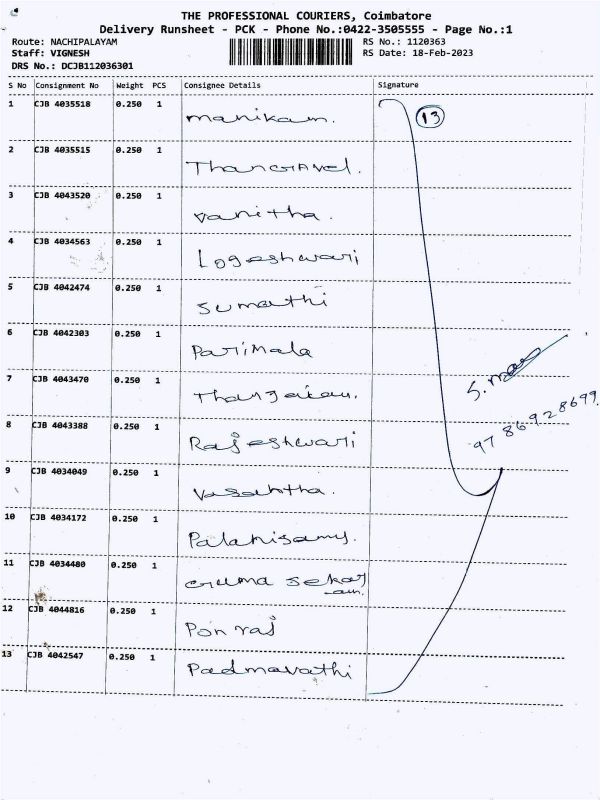 THE PROFESSIONAL COURIERS, Coimbatore
Delivery Runsheet - PCK - Phone No.:0422-3505555 - Page No.:1
Route: NACHIPALAYAM
Staff: VIGNESH
DRS No.: DCJB112036301
RS No.: 1120363
RS Date: 18-Feb-2023
S No Consignment No Weight PCS Consignee Details Signature
1 CJB 4035518 0.250 1 manikam. 13
2 CJB 4035515 0.250 1 Thangavel.
3 CJB 4043520 0.250 1 vanitha.
4 CJB 4034563 0.250 1 Logeshwari
5 CJB 4042474 0.250 1 Sumathi
6 CJB 4042303 0.250 1 Parimala
7 CJB 4043470 0.250 1
8 CJB 4043388 0.250 1 Rajeshwari
97 8692 8699
9 CJB 4034049 0.250 1 Vasantha.
10 CJB 4034172 0.250 1 Palanisamy.
11 CJB 4034480 0.250 1 sekar
12 CJB 4044816 0.250 1 Ponraj
13 CJB 4042547 0.250 1 Padmavathi